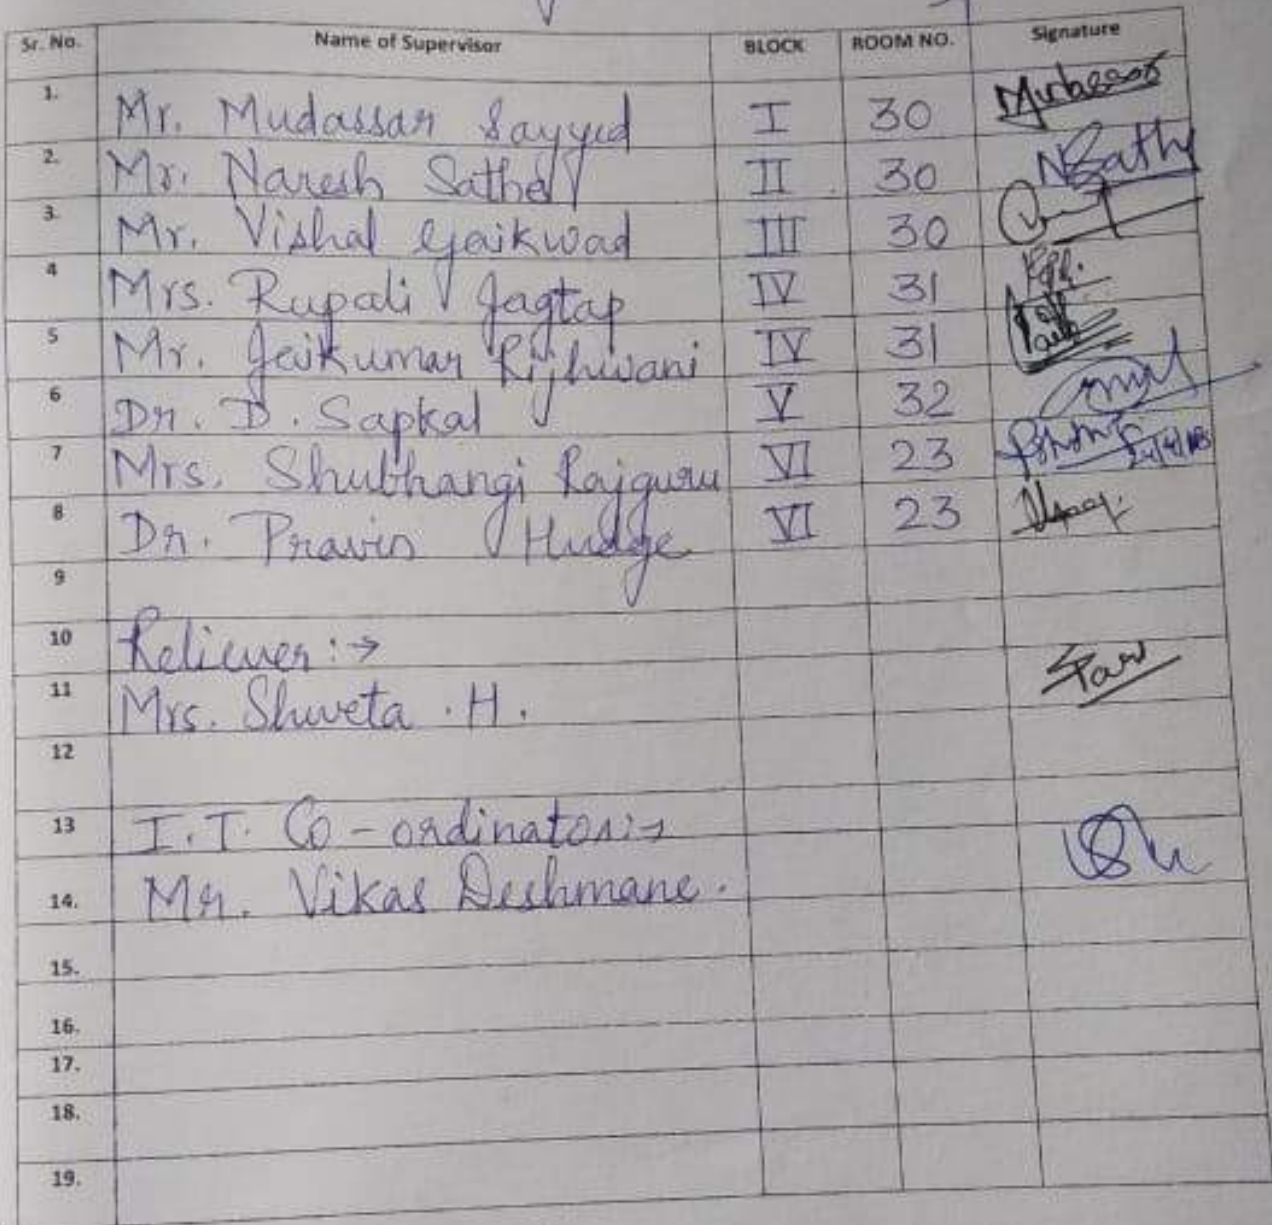 Sr. No. Name of Supervisor BLOCK ROOM NO. Signature
1. Mr. Mudassar Sayyed I 30
2. Mr. Naresh Sathe II 30 NSathe
3. Mr. Vishal Gaikwad III 30
4 Mrs. Rupali Jagtap IV 31
5 Mr. Jaikumar Rijhwani IV 31
6 Dr. D. Sapkal V 32
7 Mrs. Shubhangi Rajguru VI 23
8 Dr. Pravin Hudge VI 23
9
10 Reliever :→
11 Mrs. Shweta . H.
12
13 I.T. Co-ordinator:→
14. Mr. Vikas Deshmane.
15.
16.
17.
18.
19.